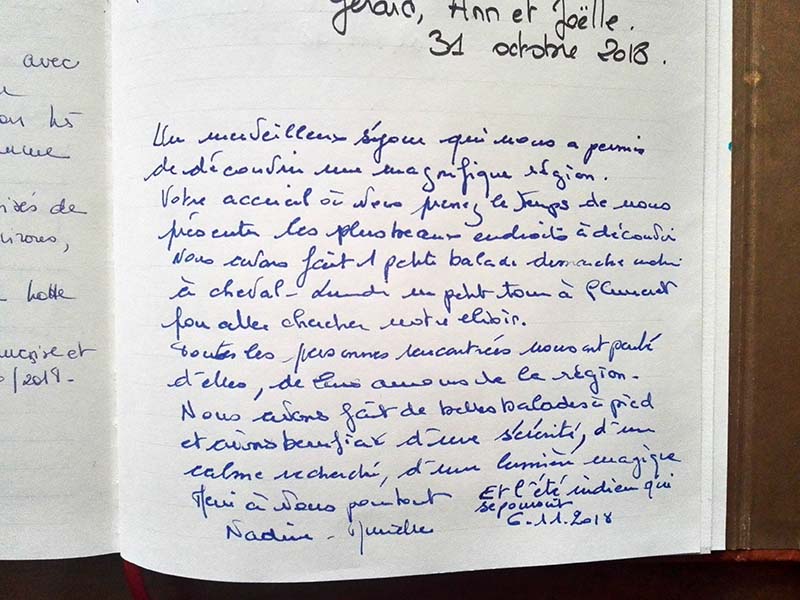 Gérard, Ann et Joëlle.
31 octobre 2018.
avec
une
isés de
hotte
/2018-
Un merveilleux séjour qui nous a permis
de découvrir une magnifique région.
Votre accueil où vous prenez le temps de nous
présenter les plus beaux endroits à découvrir
Nous avons fait 1 petite balade dimanche matin
à cheval - Lundi un petit tour à
pour aller chercher notre elixir.
Toutes les personnes rencontrées nous ont parlé
d'elles, de leurs amours de la région.
Nous avons fait de belles balades à pied
et avons bénéficié d'une sérénité, d'un
calme recherché, d'une lumière magique
Et l'été indien qui
se poursuit
Merci à vous pour tout
6.11.2018
Nadine -